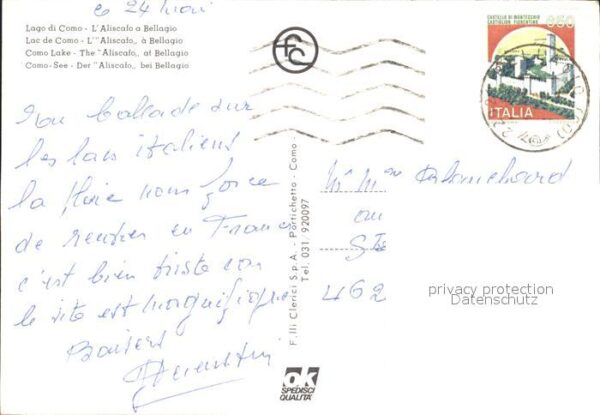 le 24 Mai
Lago di Como - L'Aliscafo a Bellagio
Lac de Como - L'"Aliscafo„ à Bellagio
Como Lake - The "Aliscafo„ at Bellagio
Como-See - Der "Aliscafo„ bei Bellagio
CASTELLO DI MONTECCHIO
CASTIGLION FIORENTINO
850
ITALIA
ballade sur
les lacs italiens
la pluie nous force
de rentrer en France
c'est bien triste car
le site est magnifique
Baisers
F.lli Clerici S.p.A. - Portichetto - Como
Tel. 031. 920097
Mr Mme Blanchard
462
privacy protection
Datenschutz
ok
SPEDISCI
QUALITÀ